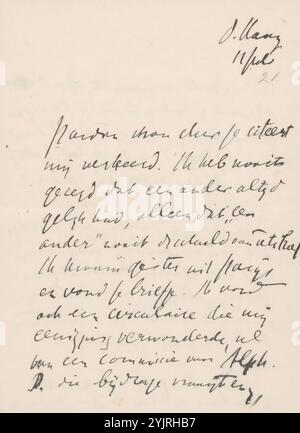 d. Haag
11 Juli
21
Pardon mon cher je citeert
mij verkeerd. Ik heb nooit
gezegd dat een ander altyd
gelyk had, alleen dat "een
ander" nooit de schuld van iets had
Ik kwam gister uit Parijs
en vond je briefje. Ik vond
ook een circulaire die mij
eenigzins verwonderde, nl
van een commissie voor Alph.
D. die bijdrage vraagt en
alamy
Image ID: 2YJRHB7
www.alamy.com